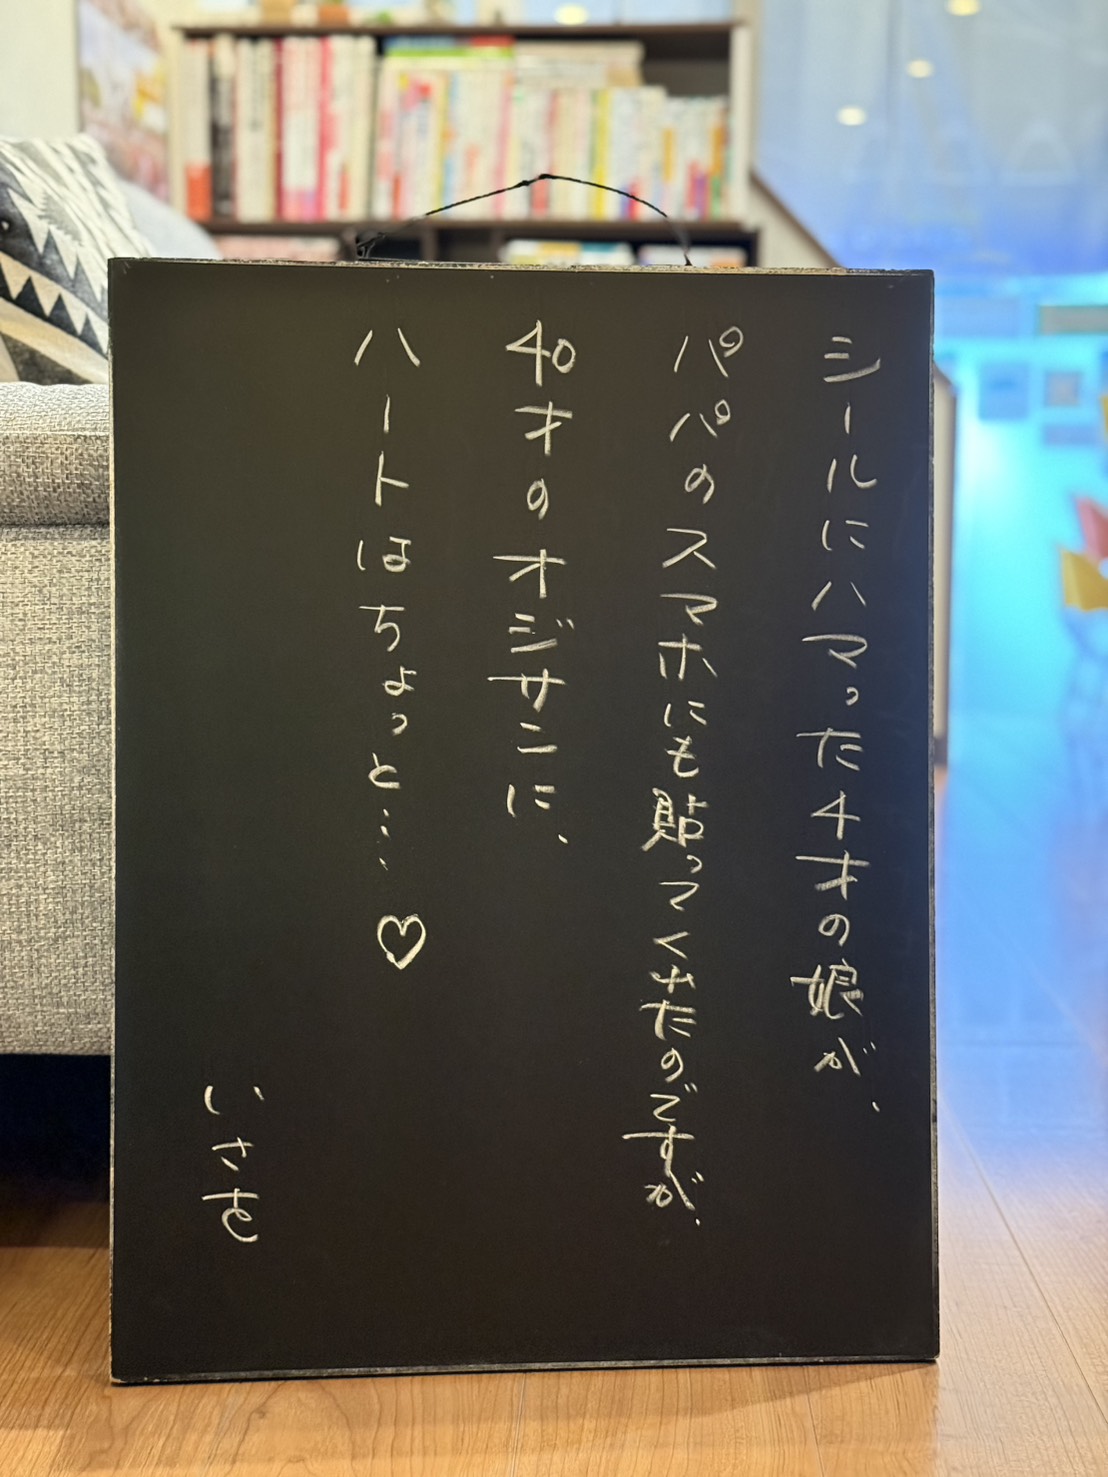 シールにハマった4才の娘が、
パパのスマホにも貼ってく出たのですが、
40才のオジサンに、
ハートはちょっと…♡
いさを